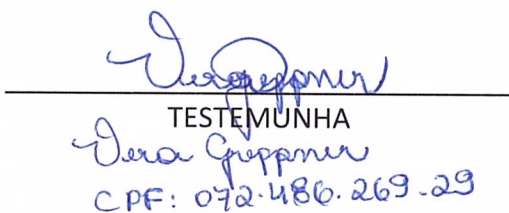 Vera Greppner
TESTEMUNHA
Vera Greppner
CPF: 072.486.269-29